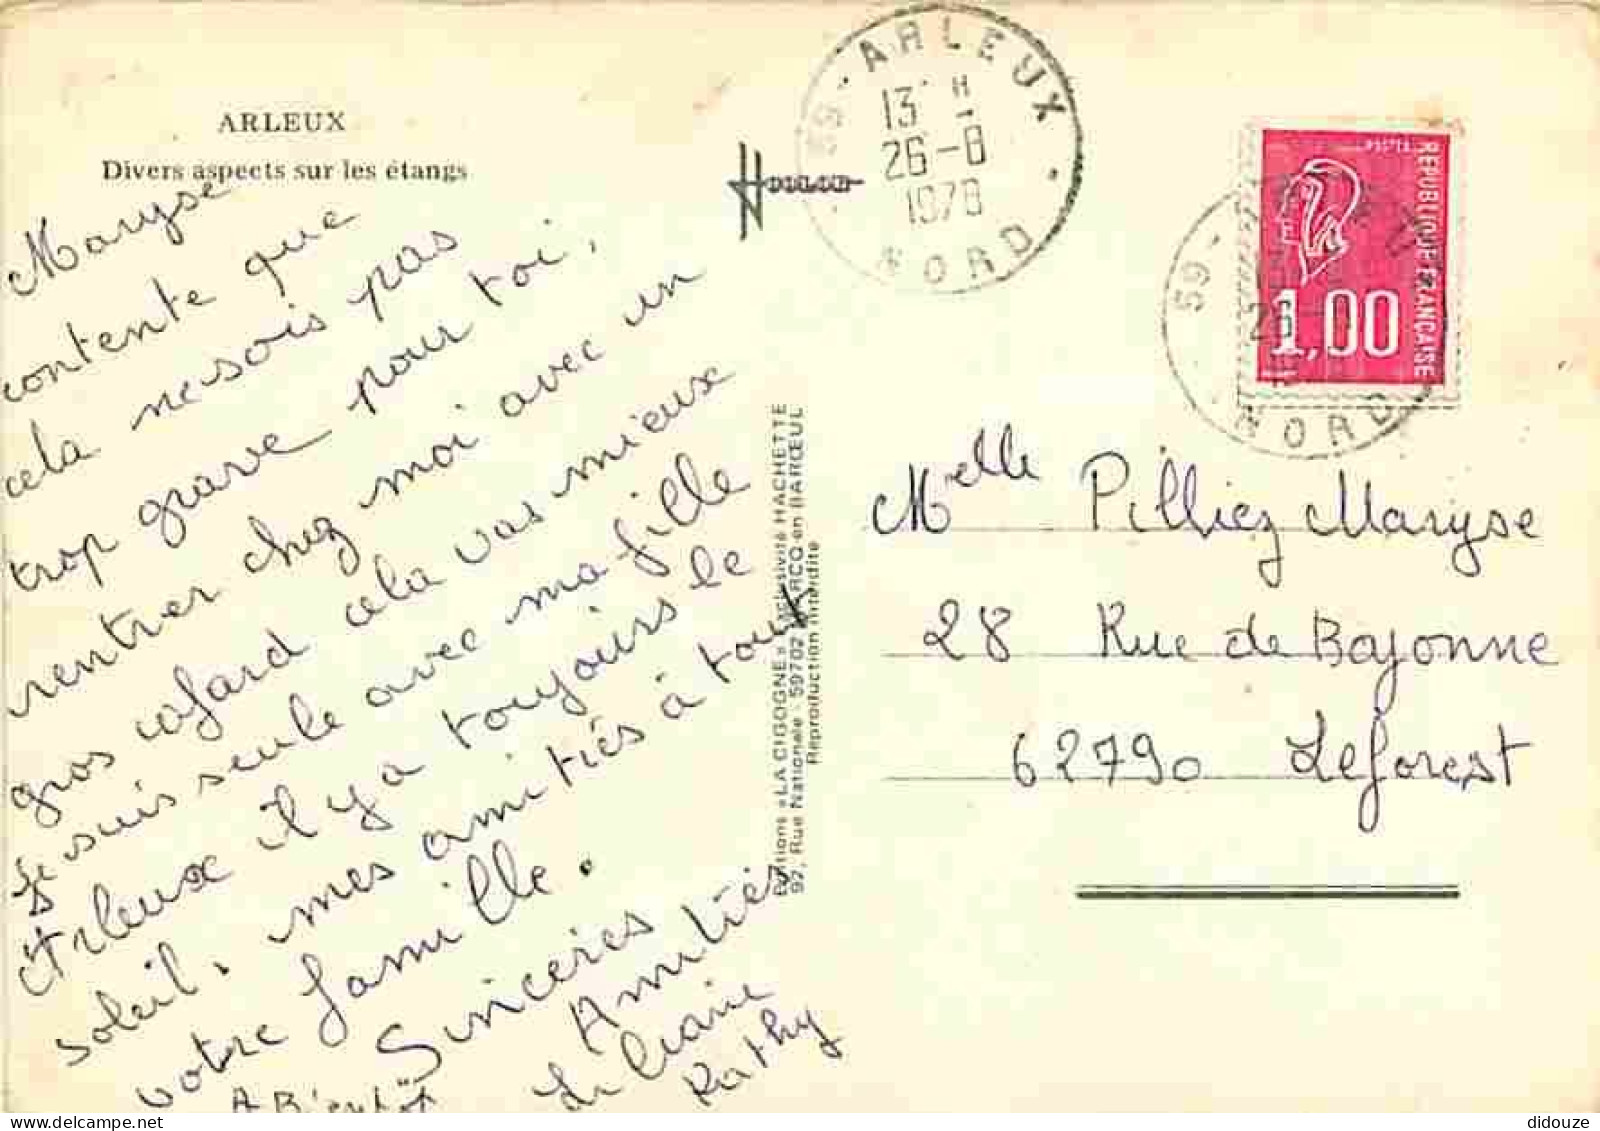 ARLEUX
Divers aspects sur les étangs
Maryse
contente que
cela ne sois pas
trop grave pour toi,
rentrer chez moi avec un
gros cafard cela vas mieux
Je suis seule avec ma fille
Arleux il y a toujours le
soleil. mes amitiés à tous
votre famille.
Sincères
Amitiés
Liliane
Kathy
A Bientôt
59 - ARLEUX
13 H
26 - 8
1978
NORD
Editions «LA CIGOGNE» exclusivité HACHETTE
92, Rue Nationale 59702 MARCQ en BARŒUL
Reproduction interdite
59 -
26
NORD
REPUBLIQUE FRANÇAISE
1,00
Melle Pilliez Maryse
28 Rue de Bayonne
62790 Leforest
didouze / delcampe.net